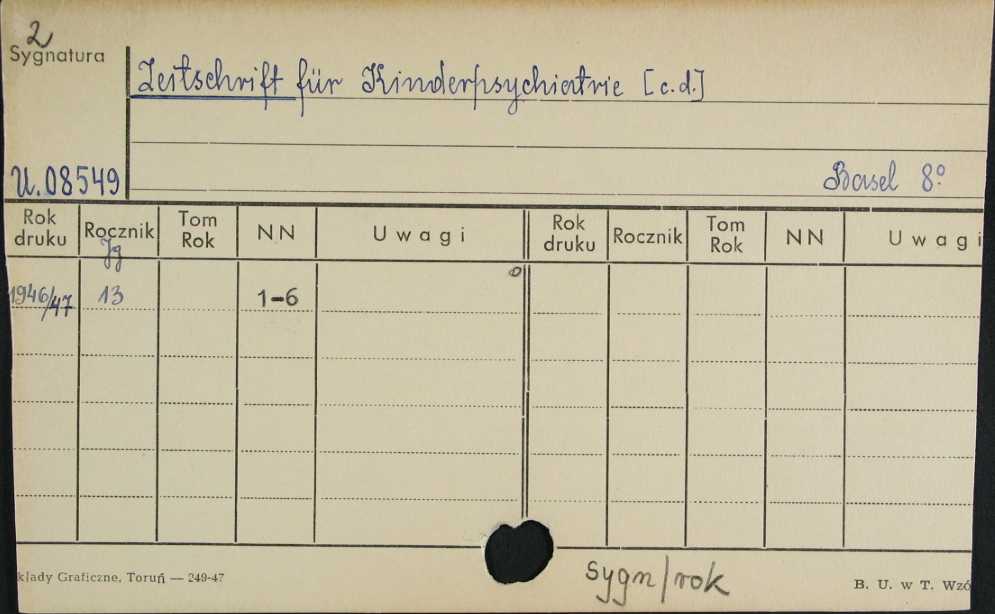 2
Sygnatura
Zeitschrift für Kinderpsychiatrie [c.d.]
U.08549
Basel 8°
Rok druku Rocznik Tom Rok NN Uwagi Rok druku Rocznik Tom Rok NN Uwagi
Jg
1946/47 13 1-6
kłady Graficzne, Toruń — 249-47
sygn/rok
B. U. w T. Wzó